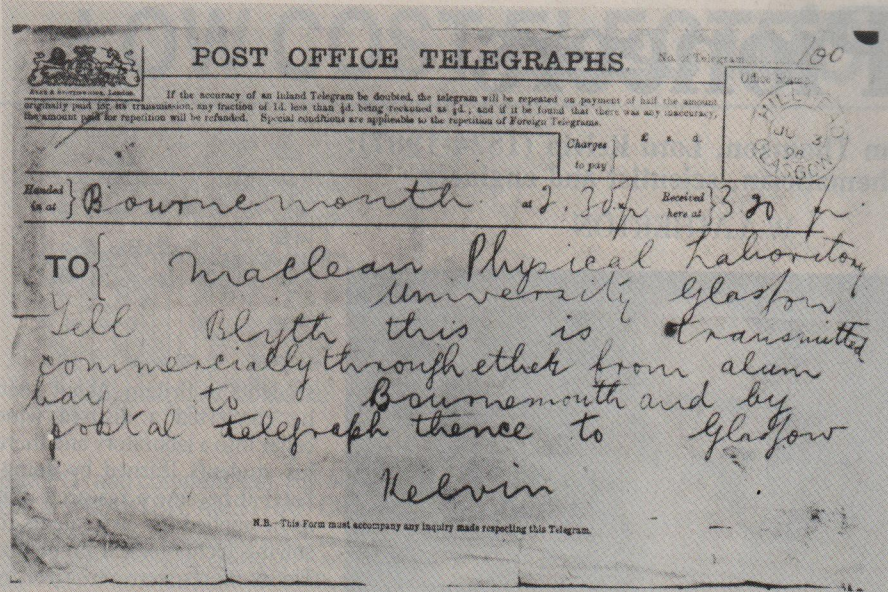 POST OFFICE TELEGRAPHS.
No. of Telegram
100
Office Stamp.
If the accuracy of an Inland Telegram be doubted, the telegram will be repeated on payment of half the amount
originally paid for its transmission, any fraction of 1d. less than ½d. being reckoned as ½d.; and if it be found that there was any inaccuracy,
the amount paid for repetition will be refunded. Special conditions are applicable to the repetition of Foreign Telegrams.
HILL
JU 3
98
GLASGOW
Charges to pay } £ s. d.
Handed in at } Bournemouth at 2.30 p Received here at } 3 20 p
TO { Maclean Physical Laboritory
University Glasgow
Tell Blyth this is transmitted
commercially through ether from alum
bay to Bournemouth and by
postal telegraph thence to Glasgow
Kelvin
N.B.—This Form must accompany any inquiry made respecting this Telegram.